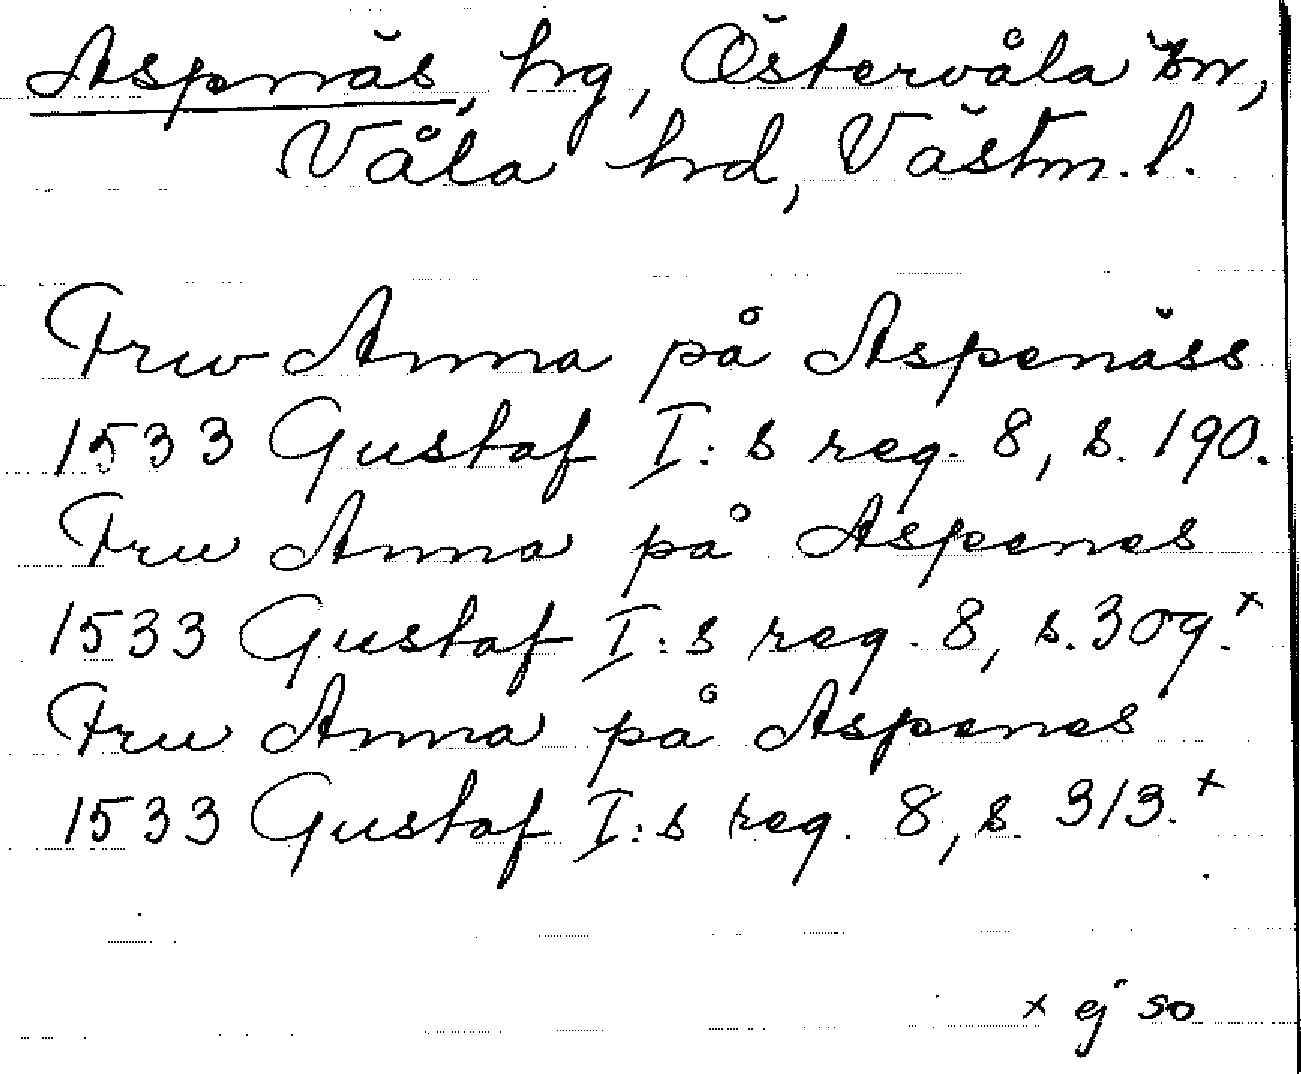 Aspnäs, hg, Östervåla sn,
Våla hrd, Västm. l.
Frw Anna på Aspenäss
1533 Gustaf I:s reg. 8, s. 190.
Fru Anna på Aspenes
1533 Gustaf I:s reg. 8, s. 309.x
Fru Anna på Aspenes
1533 Gustaf I:s reg. 8, s. 313.x
x ej so